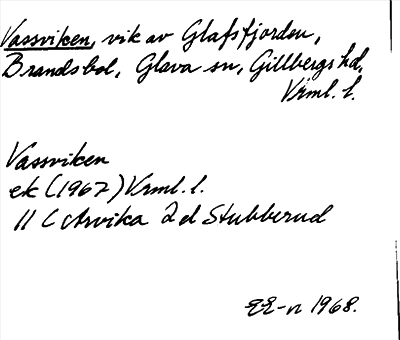 Vassviken, vik av Glafsfjorden,
Brandsbol, Glava sn, Gillbergs hd,
Vrml. l.
Vassviken
ek (1967) Vrml. l.
11 C Arvika 2 d Stubberud
EE-n 1968.